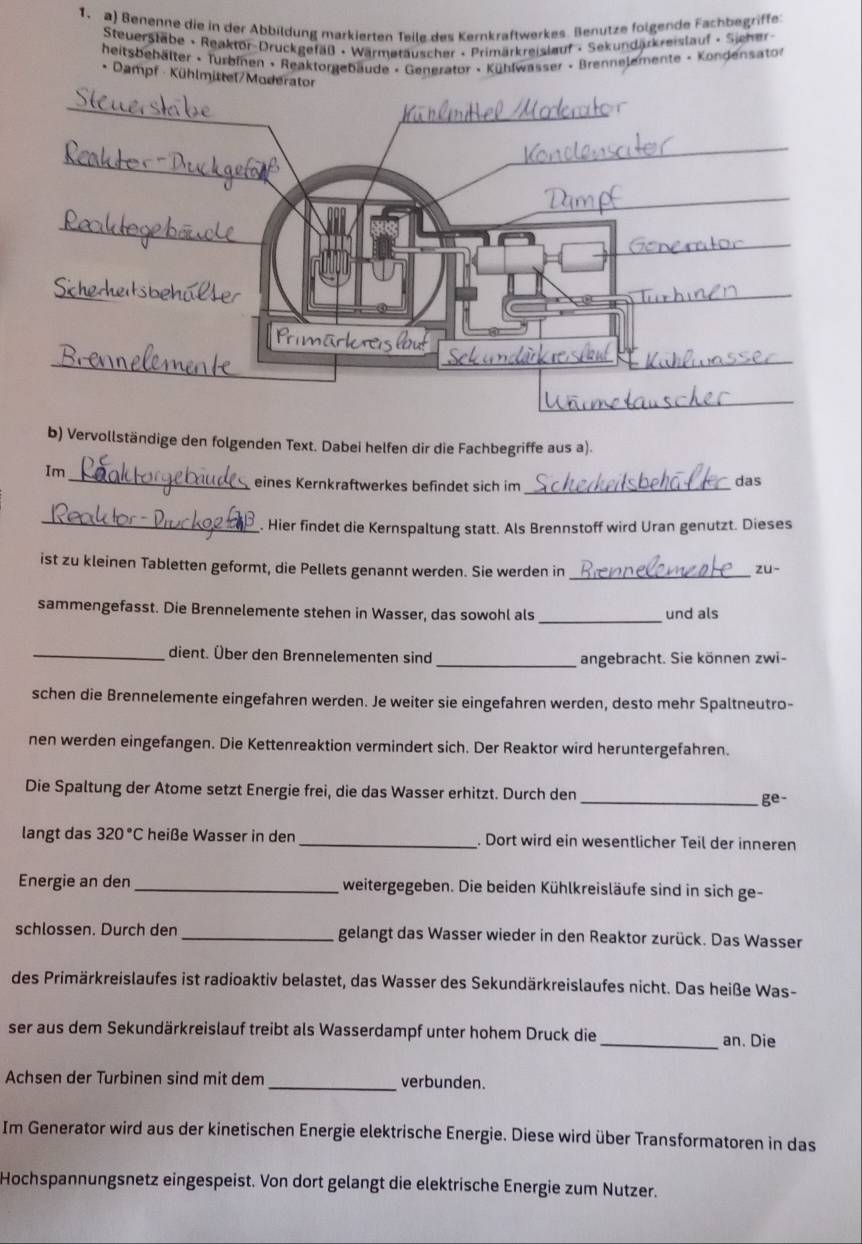 1. a) Benenne die in der Abbildung markierten Teile des Kernkraftwerkes. Benutze folgende Fachbegriffe:
Steuerstäbe • Reaktor-Druckgefäß • Wärmetauscher • Primärkreislauf • Sekundärkreislauf • Sicher-
heitsbehälter • Turbinen • Reaktorgebäude • Generator • Kühlwasser • Brennelemente • Kondensator
• Dampf · Kühlmittel/Moderator
Steuerstäbe
Kühlmittel/Moderator
Kondensator
Reaktor-Druckgefäß
Dampf
Reaktegebäude
Generator
Sicherheitsbehälter
Turbinen
Primärkreislauf
Sekundärkreislauf
Kühlwasser
Brennelemente
Wärmetauscher
b) Vervollständige den folgenden Text. Dabei helfen dir die Fachbegriffe aus a).
Im Reaktorgebäudes eines Kernkraftwerkes befindet sich im Sicherheitsbehälter das
Reaktor-Druckgefäß. Hier findet die Kernspaltung statt. Als Brennstoff wird Uran genutzt. Dieses
ist zu kleinen Tabletten geformt, die Pellets genannt werden. Sie werden in Brennelemente zu-
sammengefasst. Die Brennelemente stehen in Wasser, das sowohl als ____________ und als
____________ dient. Über den Brennelementen sind ____________ angebracht. Sie können zwi-
schen die Brennelemente eingefahren werden. Je weiter sie eingefahren werden, desto mehr Spaltneutro-
nen werden eingefangen. Die Kettenreaktion vermindert sich. Der Reaktor wird heruntergefahren.
Die Spaltung der Atome setzt Energie frei, die das Wasser erhitzt. Durch den ____________ ge-
langt das 320 °C heiße Wasser in den ____________. Dort wird ein wesentlicher Teil der inneren
Energie an den ____________ weitergegeben. Die beiden Kühlkreisläufe sind in sich ge-
schlossen. Durch den ____________ gelangt das Wasser wieder in den Reaktor zurück. Das Wasser
des Primärkreislaufes ist radioaktiv belastet, das Wasser des Sekundärkreislaufes nicht. Das heiße Was-
ser aus dem Sekundärkreislauf treibt als Wasserdampf unter hohem Druck die ____________ an. Die
Achsen der Turbinen sind mit dem ____________ verbunden.
Im Generator wird aus der kinetischen Energie elektrische Energie. Diese wird über Transformatoren in das
Hochspannungsnetz eingespeist. Von dort gelangt die elektrische Energie zum Nutzer.